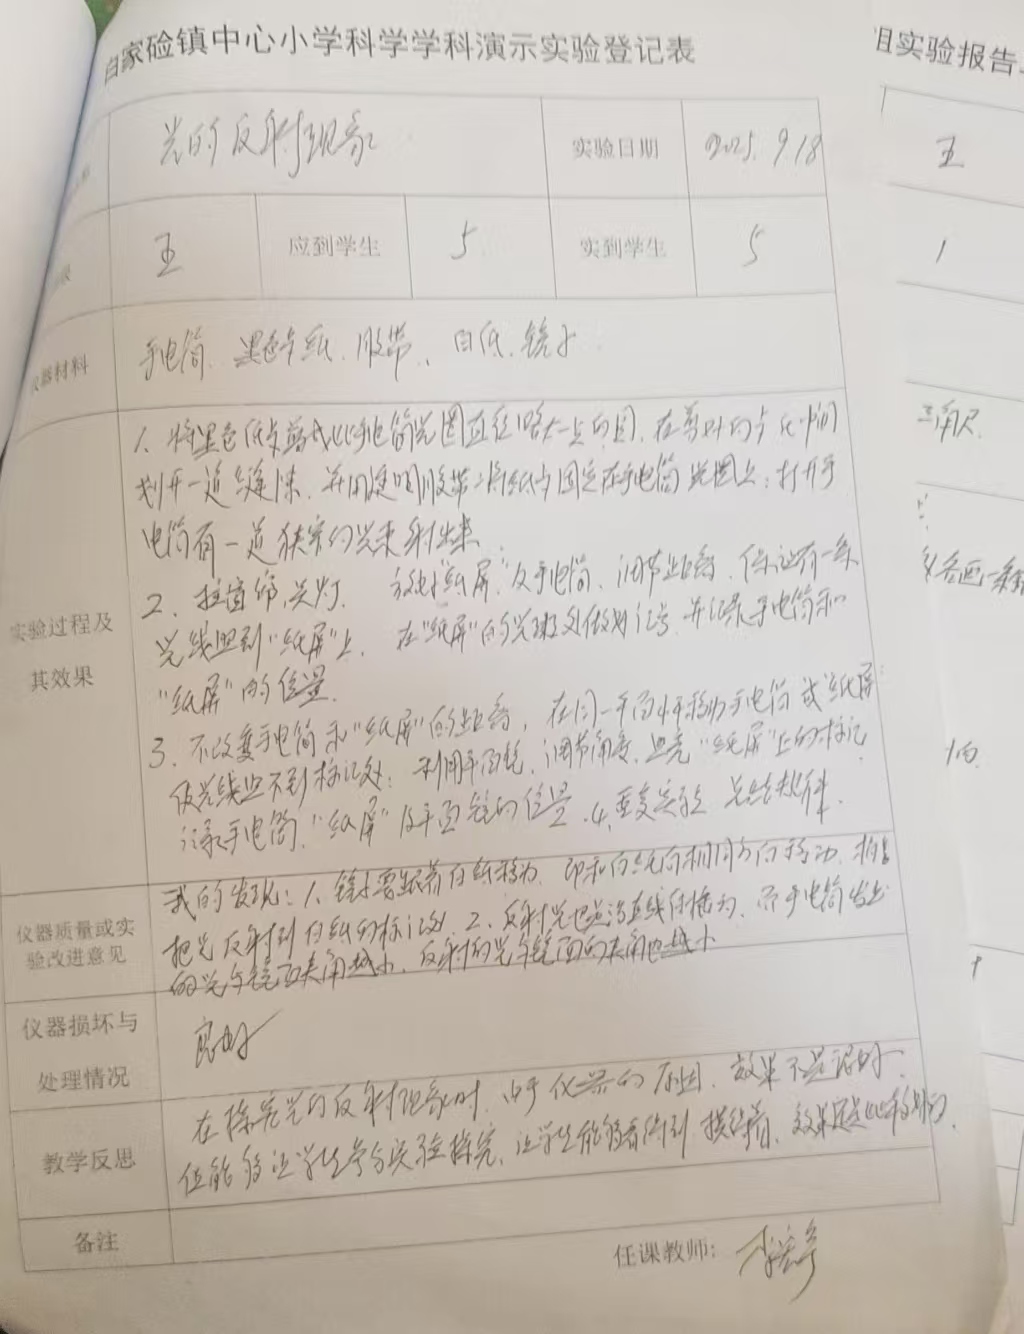 家硷镇中心小学科学学科演示实验登记表
光的反射现象
实验日期
2025.9.18
五
应到学生
5
实到学生
5
器材料
手电筒、黑色卡纸、胶带、白纸、镜子
实验过程及
其效果
1、将黑色纸片剪成比手电筒光圈直径略大一点的圆,在剪好的卡纸中间
划开一道缝隙,并用透明胶带将纸片固定在手电筒光圈上;打开手
电筒有一道狭窄的光束射出来
2、拉窗帘,关灯、"纸屏"及手电筒、调节距离、保证有一条
光线照到"纸屏"上,在"纸屏"的光斑处做好记号,并记录手电筒和
"纸屏"的位置
3、不改变手电筒和"纸屏"的距离,在同一平面中移动手电筒或"纸屏"
使光线照不到标记处;利用平面镜,调节角度,照亮"纸屏"上的标记,
记录手电筒、"纸屏"及平面镜的位置.4、重复实验 总结规律.
仪器质量或实
验改进意见
我的发现:1、镜子要跟着白纸移动,即和白纸向相同方向移动,
把光反射到白纸的标记处.2、反射光也是沿直线传播的,而手电筒发出
的光与镜面夹角越小,反射的光与镜面的夹角也越小
仪器损坏与
处理情况
良好
教学反思
在探究光的反射现象时,由于仪器的原因,效果不是很好,
但能够让学生参与实验探究,让学生能够看得到、摸得着,效果还是比较好的.
备注
任课教师:
组实验报告
五
1
三角尺